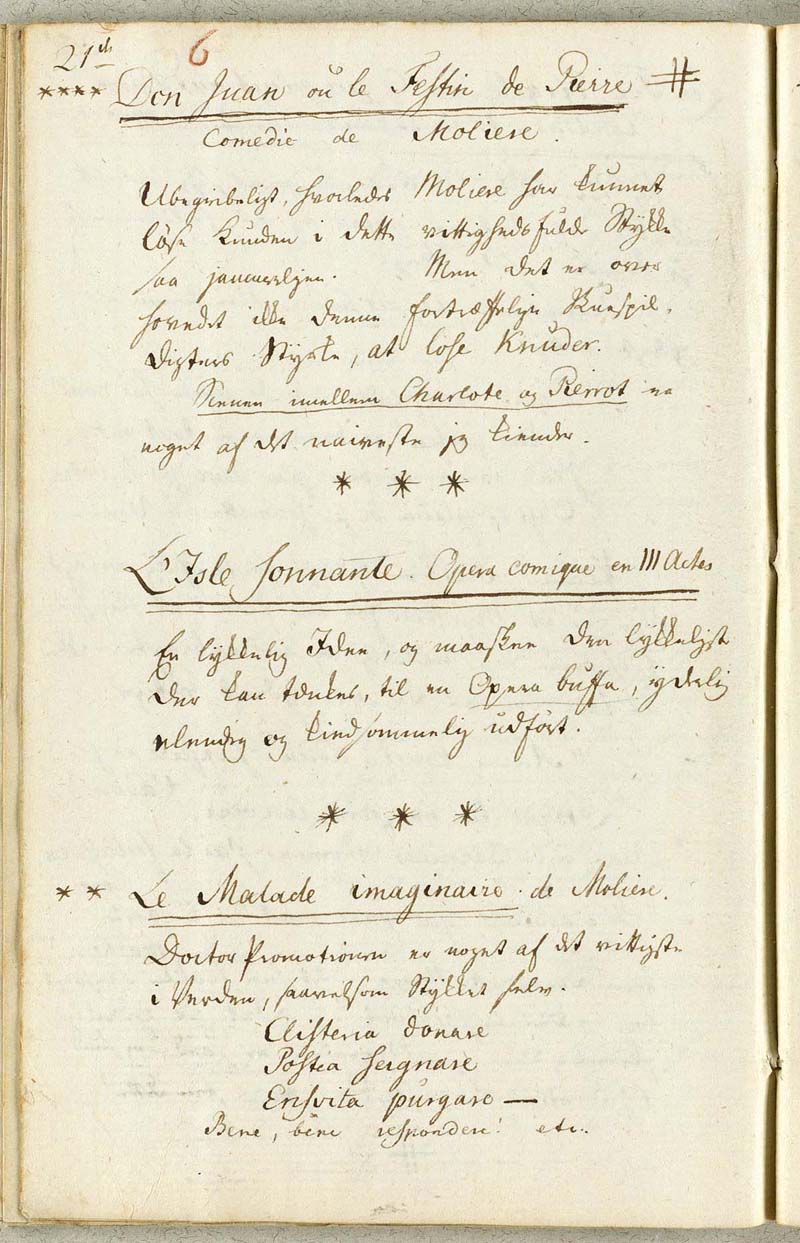 21de 6
**** Don Juan ou le Festin de Pierre #
Comedie de Moliere.
Ubegribeligt, hvorledes Moliere har kunnet
løse Knuden i dette vittighedsfulde Stykke
saa jammerligen. Men det er over
hovedet ikke denne fortræffelige Skuespil-
digters Styrke, at løse Knuder.
Scenen imellem Charlote og Pierrot er
noget af det naiveste jeg kiender.
* * *
L'Isle sonnante. Opera comique en III Actes
En lykkelig Idee, og maaskee den lykkeligste
der kan tænkes, til en Opera buffa, yderlig
elendig og kiedsommelig udført.
* * *
** Le Malade imaginaire. de Moliere.
Doctor Promotionen er noget af det vittigste
i Verden, saavelsom Stykket selv.
Clisteria donare
Postea seignare
Ensvita purgare —
Bene, bene respondere! etc.